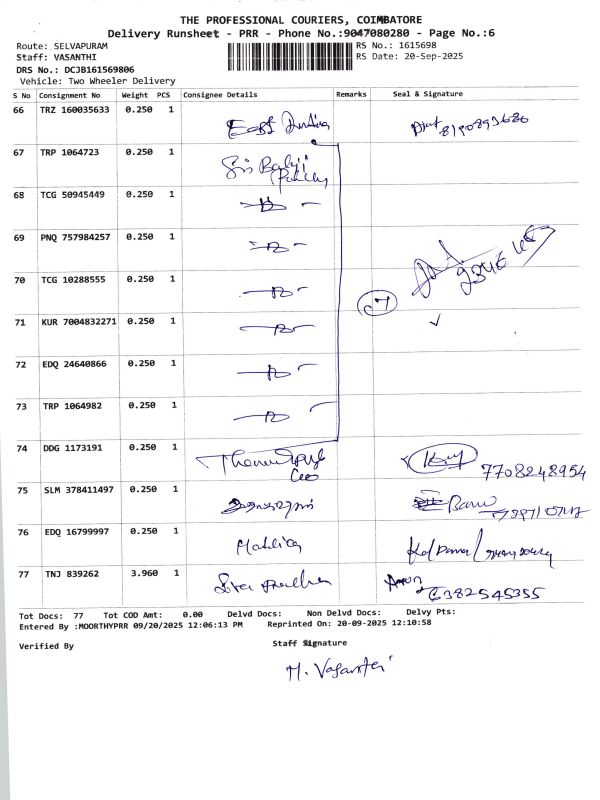 THE PROFESSIONAL COURIERS, COIMBATORE
Delivery Runsheet - PRR - Phone No.:9047080280 - Page No.:6
Route: SELVAPURAM
RS No.: 1615698
Staff: VASANTHI
RS Date: 20-Sep-2025
DRS No.: DCJB161569806
Vehicle: Two Wheeler Delivery
S No Consignment No Weight PCS Consignee Details Remarks Seal & Signature
66 TRZ 160035633 0.250 1 East 8190893686
67 TRP 1064723 0.250 1 Sri Balaji
68 TCG 50945449 0.250 1
69 PNQ 757984257 0.250 1
70 TCG 10288555 0.250 1
71 KUR 7004832271 0.250 1
72 EDQ 24640866 0.250 1
73 TRP 1064982 0.250 1
74 DDG 1173191 0.250 1 7708248954
75 SLM 378411497 0.250 1
76 EDQ 16799997 0.250 1 Mallica
77 TNJ 839262 3.960 1 6382545355
Tot Docs: 77 Tot COD Amt: 0.00 Delvd Docs: Non Delvd Docs: Delvy Pts:
Entered By :MOORTHYPRR 09/20/2025 12:06:13 PM Reprinted On: 20-09-2025 12:10:58
Verified By
Staff Signature
M. Vasanthi